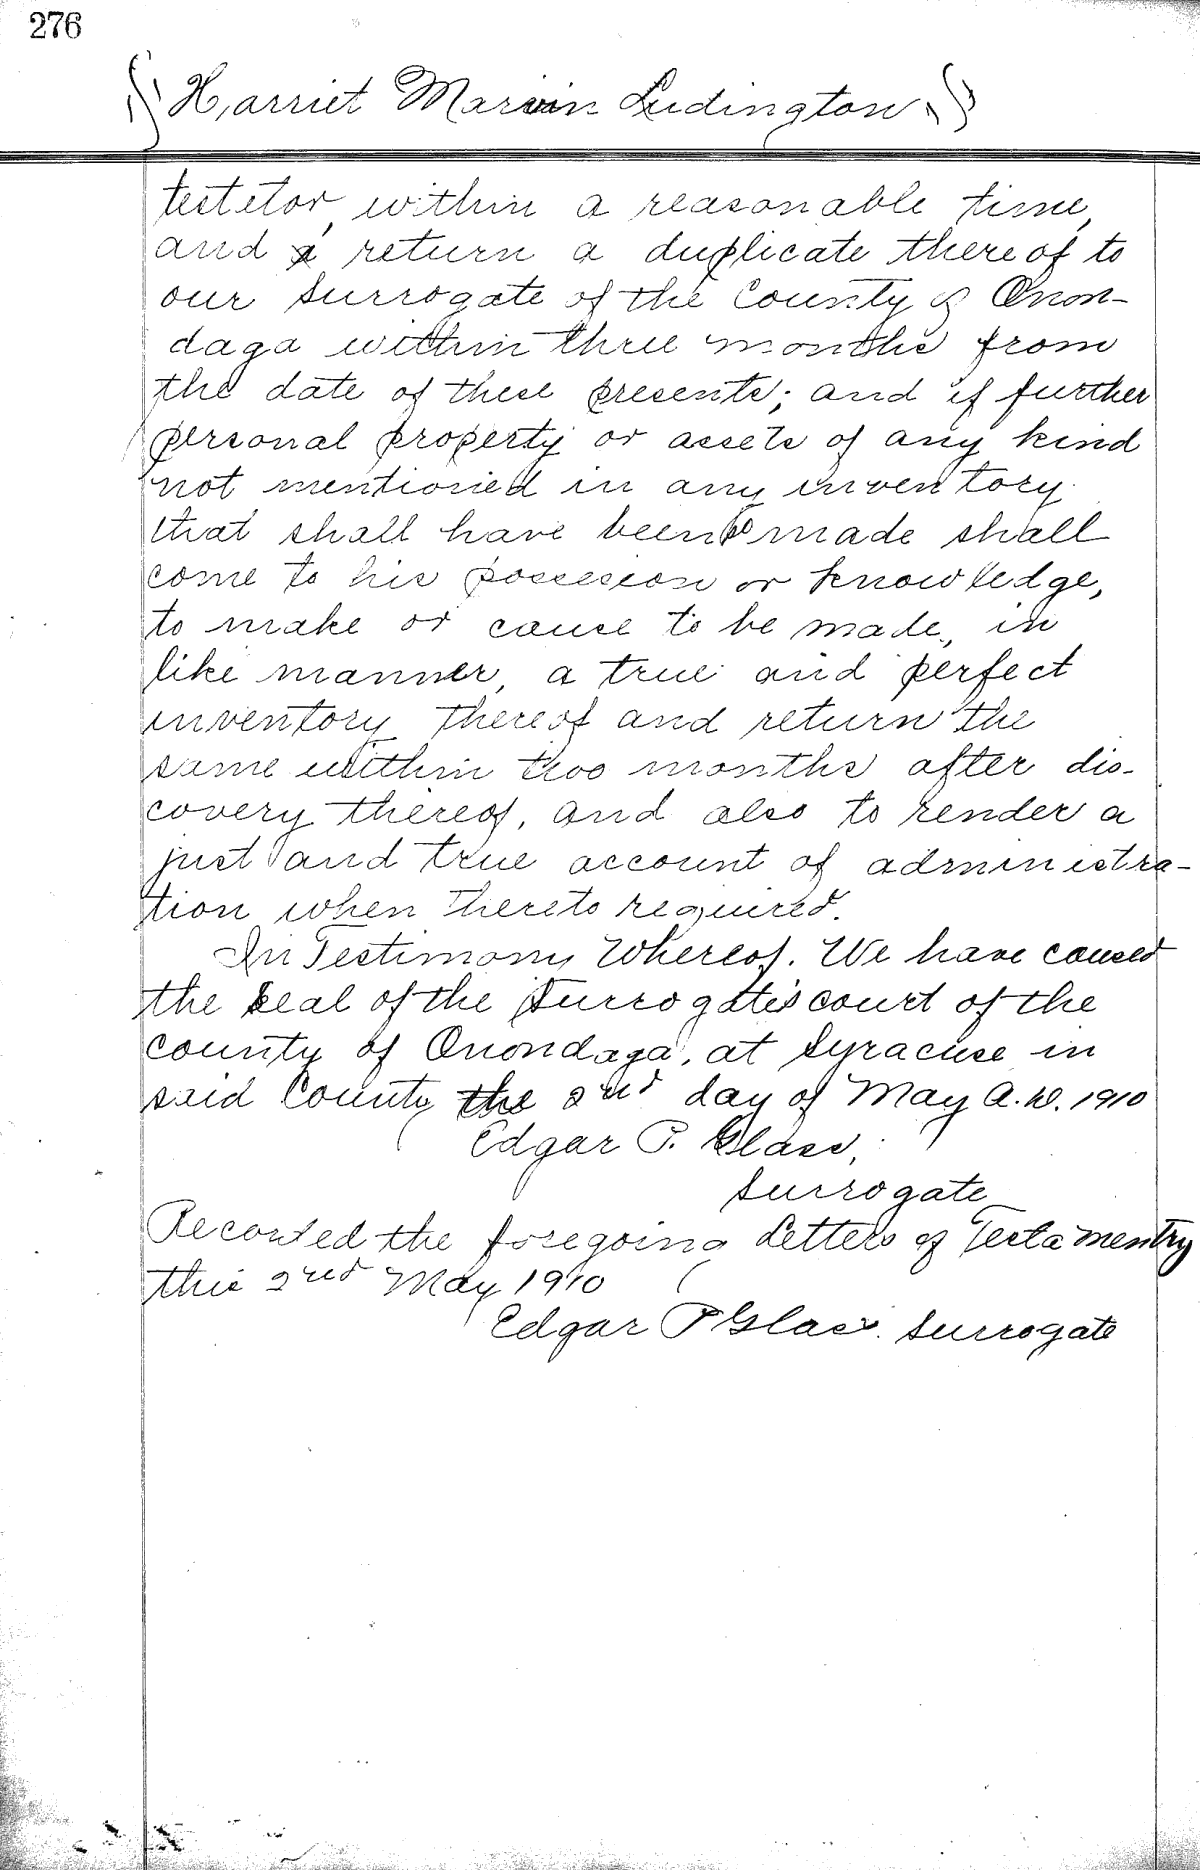 276
Harriet Marvin Ludington
testetor, within a reasonable time,
and a return a duplicate thereof to
our Surrogate of the County of Onon-
daga within three months from
the date of these presents; and if further
personal property or assets of any kind
not mentioned in any inventory
that shall have been made shall
come to his possession or knowledge,
to make or cause to be made, in
like manner, a true and perfect
inventory thereof and return the
same within two months after dis-
covery thereof, and also to render a
just and true account of administra-
tion when thereto required.
In Testimony Whereof. We have caused
the seal of the Surrogate's court of the
county of Onondaga, at Syracuse in
said County the 2nd day of May A.D. 1910
Edgar P. Glass,
Surrogate
Recorded the foregoing Letters of Testamentry
this 2nd May 1910
Edgar P Glass. Surrogate